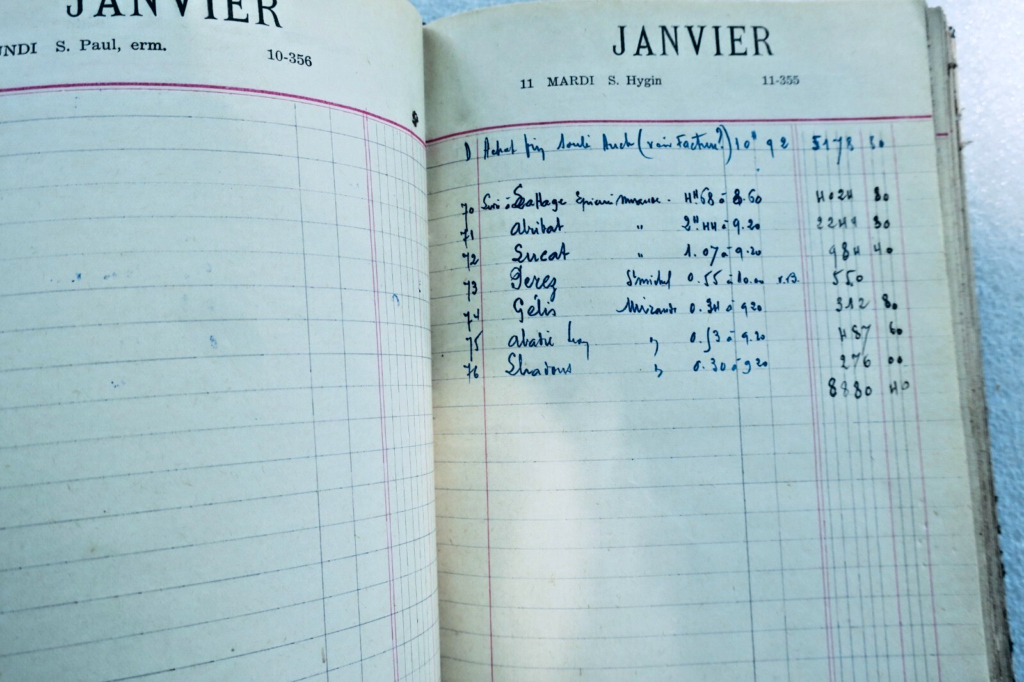 JANVIER
UNDI S. Paul, erm. 10-356
JANVIER
11 MARDI S. Hygin 11-355
D Achat Auch (voir Facture?) 10H 92 5178 80
70 Épicerie Mirande. 4H68 à 8.60 4024 80
71 Abribat " 2H44 à 9.20 2244 80
72 Sucat " 1.07 à 9.20 984 40
73 Perez St michel 0.55 à 10.00 550
74 Gélis Mirande 0.34 à 9.20 312 80
75 Abatie " 0.53 à 9.20 487 60
76 " 0.30 à 9 20 276 00
8880 40